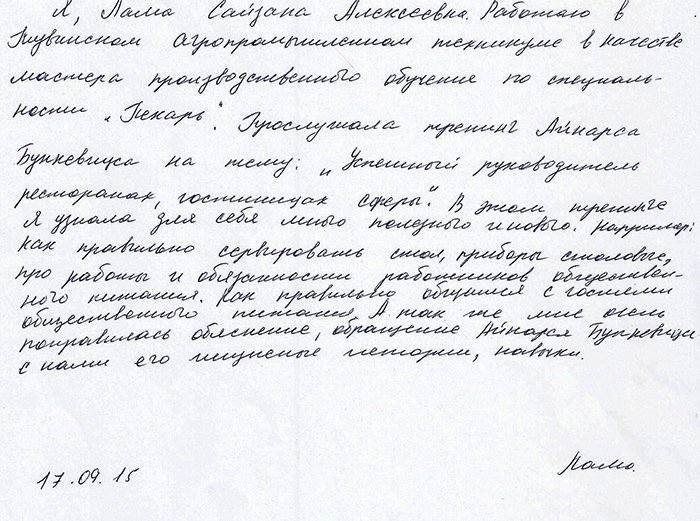 Я, Лама Сайзана Алексеевна. Работаю в
Тувинском агропромышленном техникуме в качестве
мастера производственного обучение по специаль-
ности „Пекарь". Прослушала тренинг Айнарса
Бункевицуса на тему: „Успешный руководитель
ресторанах, гостиницах сферы". В этом тренинге
я узнала для себя много полезного и нового. Например:
как правильно сервировать стол, приборы столовые,
про работы и обязанности работников обществен-
ного питания. Как правильно общатся с гостями
общественного питания. А так же мне очень
понравилась обяснение, обращение Айнарся Бункевица
с нами его истории, навыки.
17.09.15
Лама.